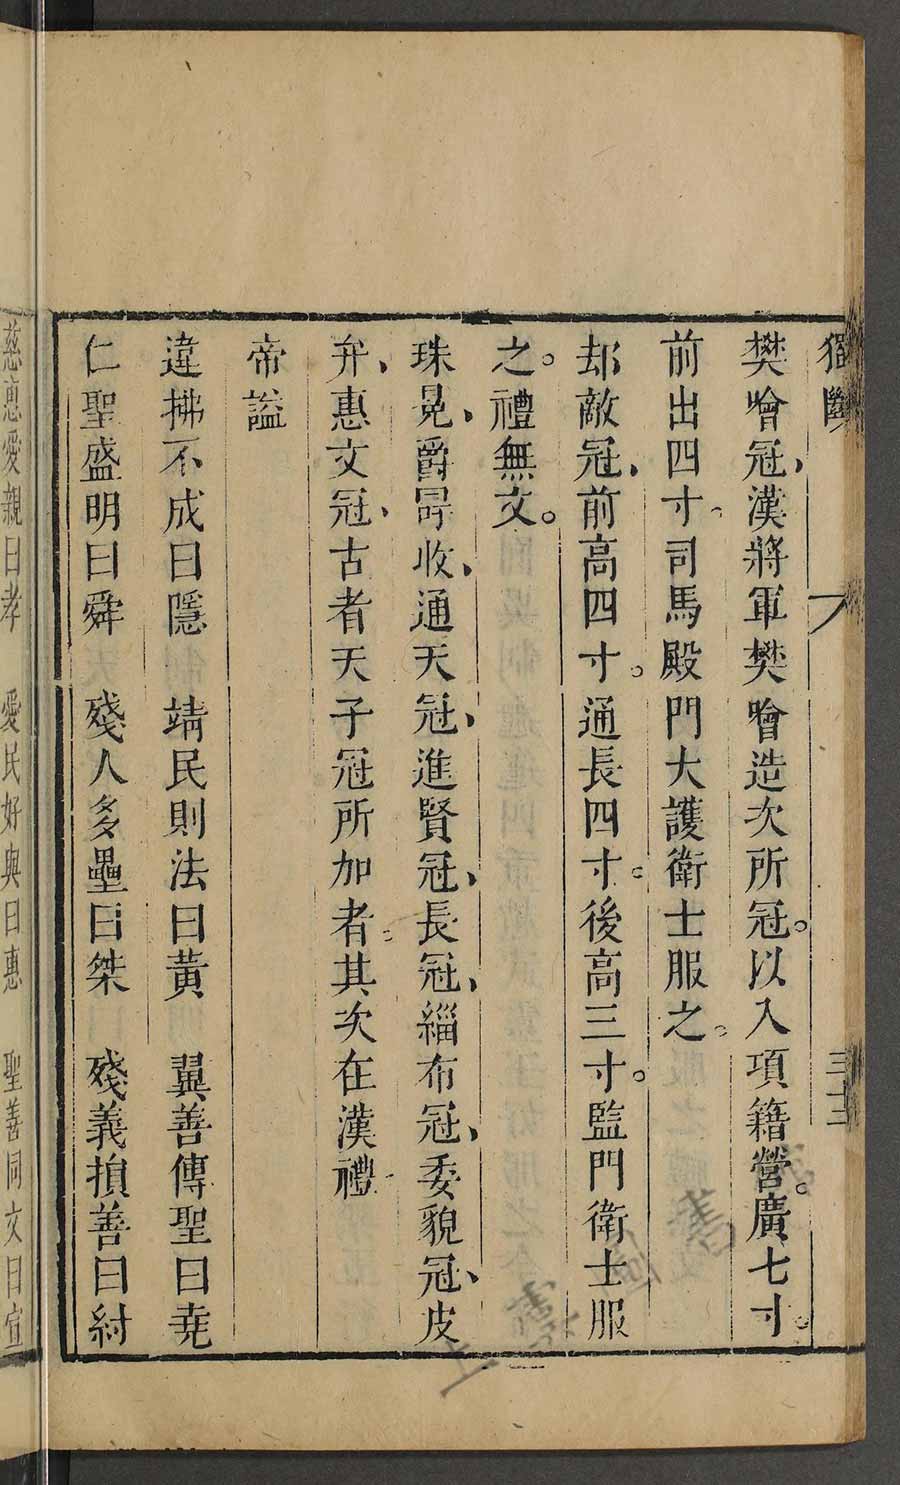 獨斷 三十三
樊噲冠、漢將軍樊噲造次所冠。以入項籍營。廣七寸。
前出四寸。司馬殿門大護衛士服之。
却敵冠、前高四寸。通長四寸。後高三寸。監門衛士服
之。禮無文。
珠冕、爵冔收、通天冠、進賢冠、長冠、緇布冠、委貌冠、皮
弁、惠文冠、古者天子冠所加者。其次在漢禮
帝謚
違拂不成曰隱 靖民則法曰黃 翼善傳聖曰堯
仁聖盛明曰舜 殘人多壘曰桀 殘義損善曰紂
慈惠愛親曰孝 愛民好與曰惠 聖善同文曰宣